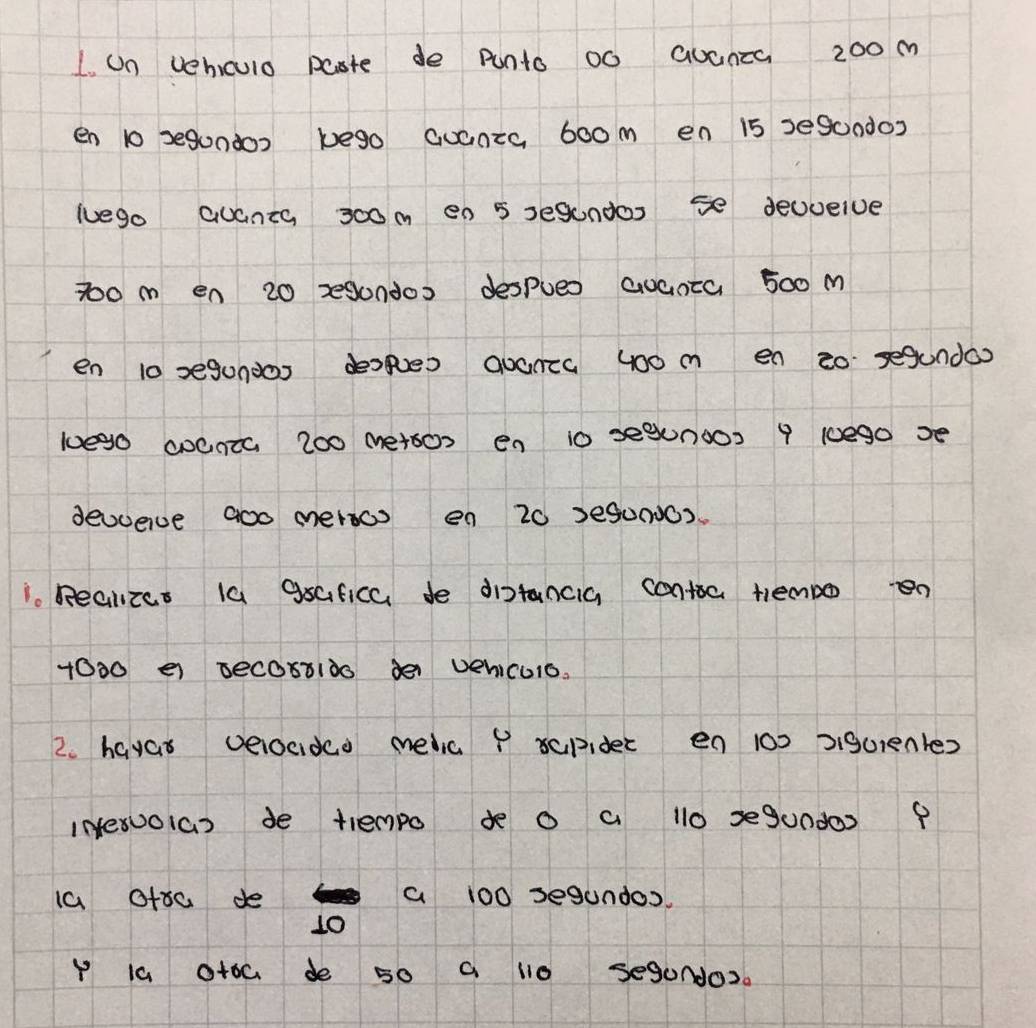 1. Un vehiculo parte de Punto 00 avanza 200 m
en 10 segundos luego avanza 600 m en 15 segundos
luego avanza 300 m en 5 segundos se devuelve
700 m en 20 segundos despues avanza 500 m
en 10 segundos despues avanza 400 m en 20 segundos
luego avanza 200 metros en 10 segundos y luego se
devuelve 900 metros en 20 segundos.
1. Realizar la grafica de distancia contra tiempo en
todo el recorrido del vehiculo.
2. hayar velocidad media y rapidez en los siguientes
intervalos de tiempo de 0 a 110 segundos y
la otra de 10 a 100 segundos.
y la otra de 50 a 110 segundos.